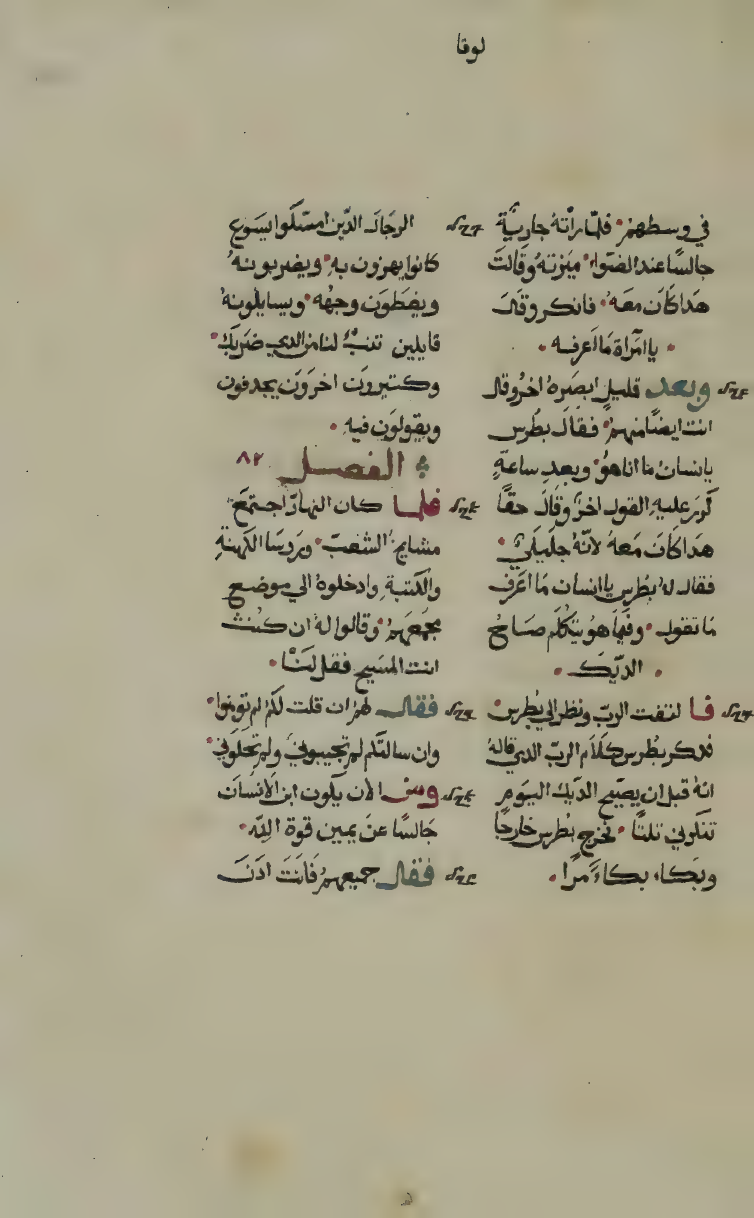 لوقا
في وسطهم فلما راته جارية
جالسًا عند الضوا ميزته وقالت
هدا كان معه فانكر وقال
يا امراة ما اعرفه
وبعد قليل ابصره اخر وقال
انت ايضًا منهم فقال بطرس
يا انسان ما انا هو وبعد ساعة
كرر عليه القول اخر وقال حقًا
هدا كان معه لانه جليلي
فقال له بطرس يا انسان ما اعرف
ما تقول وفيما هو يتكلم صاح
الديك
فا لتفت الرب ونظر الي بطرس
فدكر بطرس كلام الرب الدي قاله
انه قبل ان يصيح الديك اليوم
تنكرني تلتًا فخرج بطرس خارجًا
وبكاء بكاءً مرًا
الرجال الدين امسكوا يسوع
كانوا يهزون به ويضربونه
ويغطون وجهه ويسايلونه
قايلين تنبّ لنا من الدي ضربك
وكتيرون اخرون يجدفون
ويقولون فيه
الفصل ٨٢
فلما كان النهار اجتمع
مشايخ الشعب وروسا الكهنة
والكتبة وادخلوه الي موضع
مجمعهم وقالوا له ان كنت
انت المسيح فقل لنا
فقال لهم ان قلت لكم لم تومنوا
وان سالتكم لم تجيبوني ولم تحلوني
ومن الان يكون ابن الانسان
جالسًا عن يمين قوة الله
فقال جميعهم فانت ادن